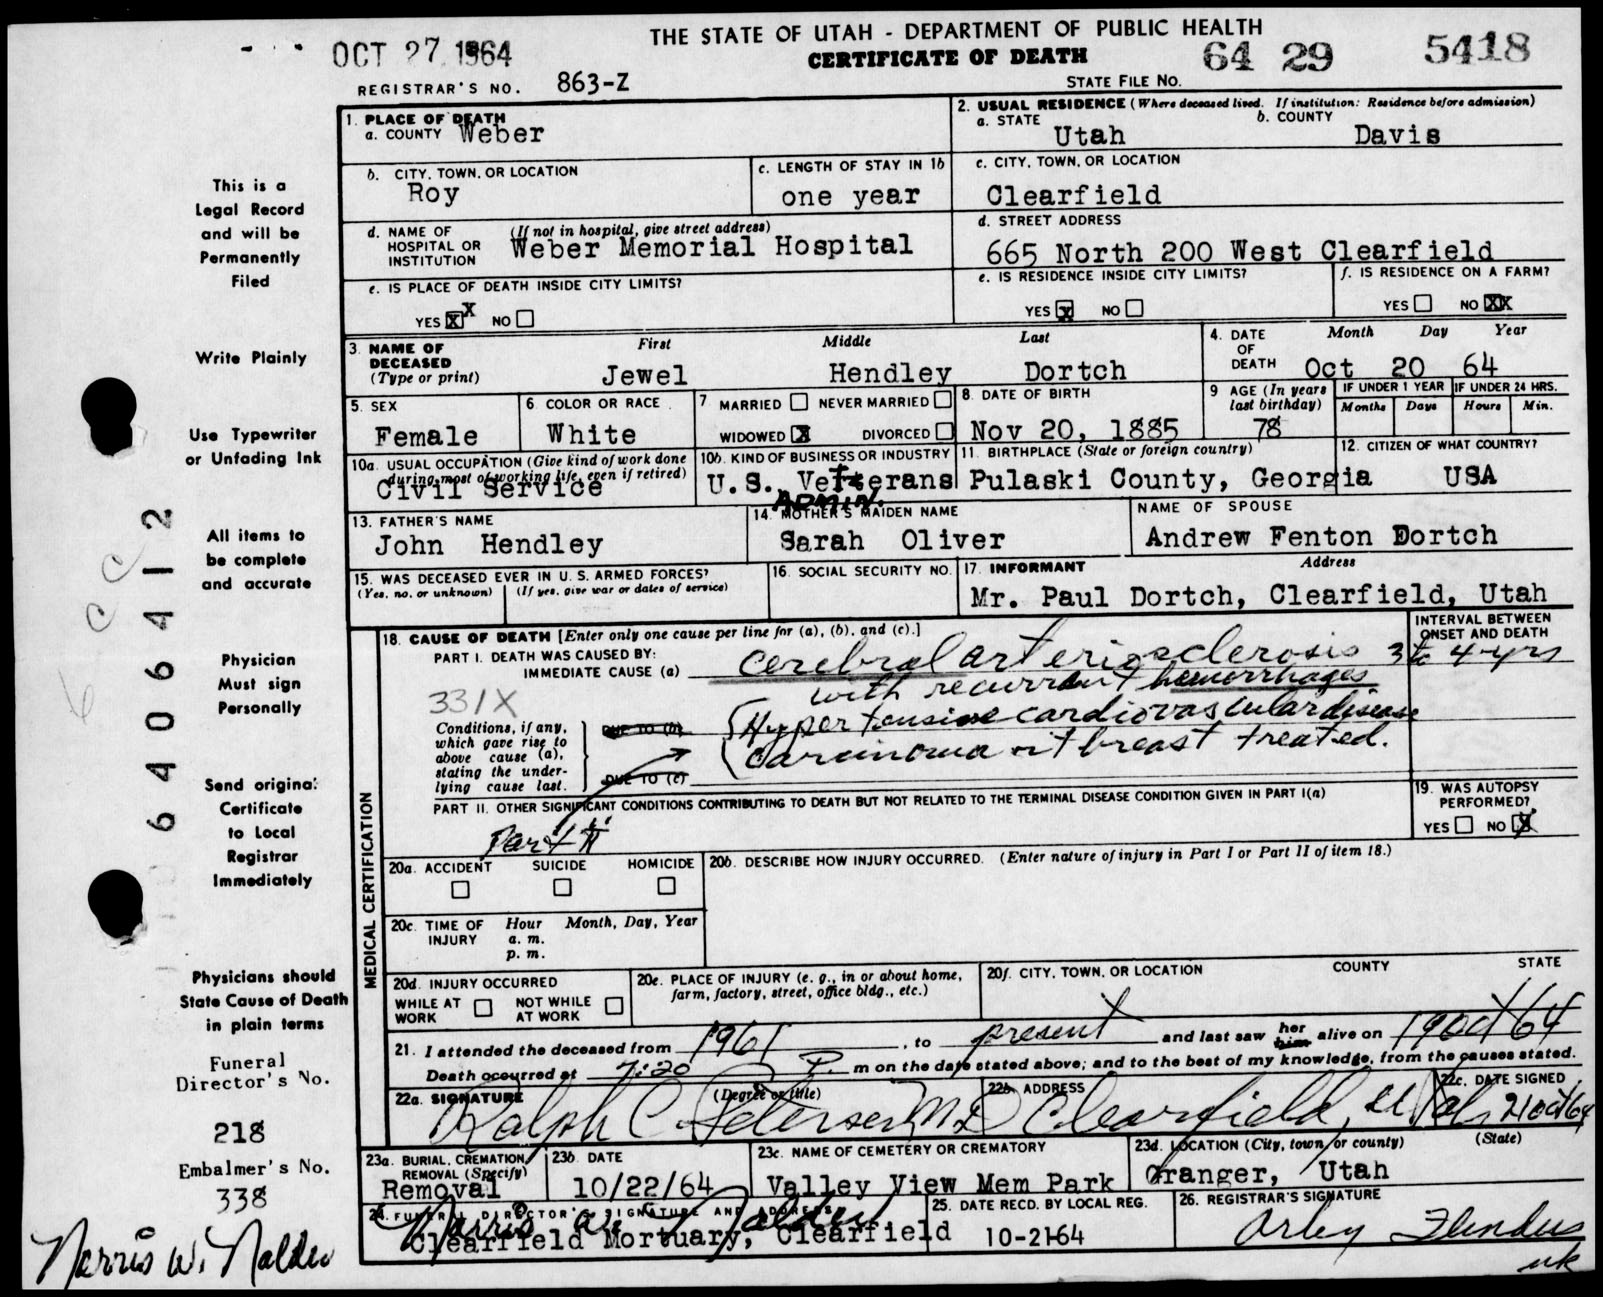 THE STATE OF UTAH - DEPARTMENT OF PUBLIC HEALTH
OCT 27 1964
CERTIFICATE OF DEATH
64 29 5418
REGISTRAR'S NO. 863-Z
STATE FILE NO.
1. PLACE OF DEATH
a. COUNTY Weber
2. USUAL RESIDENCE (Where deceased lived. If institution: Residence before admission)
a. STATE Utah
b. COUNTY Davis
b. CITY, TOWN, OR LOCATION
Roy
c. LENGTH OF STAY IN 1b
one year
c. CITY, TOWN, OR LOCATION
Clearfield
d. NAME OF HOSPITAL OR INSTITUTION
(If not in hospital, give street address)
Weber Memorial Hospital
d. STREET ADDRESS
665 North 200 West Clearfield
e. IS PLACE OF DEATH INSIDE CITY LIMITS?
YES X X NO
e. IS RESIDENCE INSIDE CITY LIMITS?
YES X NO
f. IS RESIDENCE ON A FARM?
YES NO XX
3. NAME OF DECEASED
(Type or print)
First Middle Last
Jewel Hendley Dortch
4. DATE OF DEATH
Month Day Year
Oct 20 64
5. SEX
Female
6. COLOR OR RACE
White
7. MARRIED NEVER MARRIED
WIDOWED X DIVORCED
8. DATE OF BIRTH
Nov 20, 1885
9 AGE (In years last birthday)
78
IF UNDER 1 YEAR IF UNDER 24 HRS.
Months Days Hours Min.
10a. USUAL OCCUPATION (Give kind of work done during most of working life, even if retired)
Civil Service
10b. KIND OF BUSINESS OR INDUSTRY
U.S. Veterans
ADMIN.
11. BIRTHPLACE (State or foreign country)
Pulaski County, Georgia
12. CITIZEN OF WHAT COUNTRY?
USA
13. FATHER'S NAME
John Hendley
14. MOTHER'S MAIDEN NAME
Sarah Oliver
NAME OF SPOUSE
Andrew Fenton Dortch
15. WAS DECEASED EVER IN U.S. ARMED FORCES?
(Yes, no. or unknown) (If yes, give war or dates of service)
16. SOCIAL SECURITY NO.
17. INFORMANT Address
Mr. Paul Dortch, Clearfield, Utah
18. CAUSE OF DEATH [Enter only one cause per line for (a), (b), and (c).]
INTERVAL BETWEEN ONSET AND DEATH
PART I. DEATH WAS CAUSED BY:
IMMEDIATE CAUSE (a) Cerebral arteriosclerosis 3 to 4 yrs
with recurrent hemorrhages
331X
Conditions, if any, which gave rise to above cause (a), stating the underlying cause last.
DUE TO (b) Hypertensive cardiovascular disease
Carcinoma rt breast treated.
DUE TO (c)
PART II. OTHER SIGNIFICANT CONDITIONS CONTRIBUTING TO DEATH BUT NOT RELATED TO THE TERMINAL DISEASE CONDITION GIVEN IN PART I(a)
Part II
19. WAS AUTOPSY PERFORMED?
YES NO X
MEDICAL CERTIFICATION
20a. ACCIDENT SUICIDE HOMICIDE
20b. DESCRIBE HOW INJURY OCCURRED. (Enter nature of injury in Part I or Part II of item 18.)
20c. TIME OF INJURY Hour Month, Day, Year
a. m.
p. m.
20d. INJURY OCCURRED
WHILE AT WORK NOT WHILE AT WORK
20e. PLACE OF INJURY (e. g., in or about home, farm, factory, street, office bldg., etc.)
20f. CITY, TOWN, OR LOCATION COUNTY STATE
21. I attended the deceased from 1961, to present and last saw her him alive on 19 Oct 64
Death occurred at 7:20 P. m on the date stated above; and to the best of my knowledge, from the causes stated.
22a. SIGNATURE (Degree or title)
Ralph C. Petersen M D
22b. ADDRESS
Clearfield, Utah
22c. DATE SIGNED
21 Oct 64
23a. BURIAL, CREMATION, REMOVAL (Specify)
Removal
23b. DATE
10/22/64
23c. NAME OF CEMETERY OR CREMATORY
Valley View Mem Park
23d. LOCATION (City, town, or county) (State)
Granger, Utah
24. FUNERAL DIRECTOR'S SIGNATURE AND ADDRESS
Norris W. Nalder
Clearfield Mortuary, Clearfield
25. DATE RECD. BY LOCAL REG.
10-21-64
26. REGISTRAR'S SIGNATURE
Arley Flinders
This is a
Legal Record
and will be
Permanently
Filed
Write Plainly
Use Typewriter
or Unfading Ink
All items to
be complete
and accurate
Physician
Must sign
Personally
Send original
Certificate
to Local
Registrar
Immediately
Physicians should
State Cause of Death
in plain terms
Funeral
Director's No.
218
Embalmer's No.
338
Norris W. Nalder
6406412